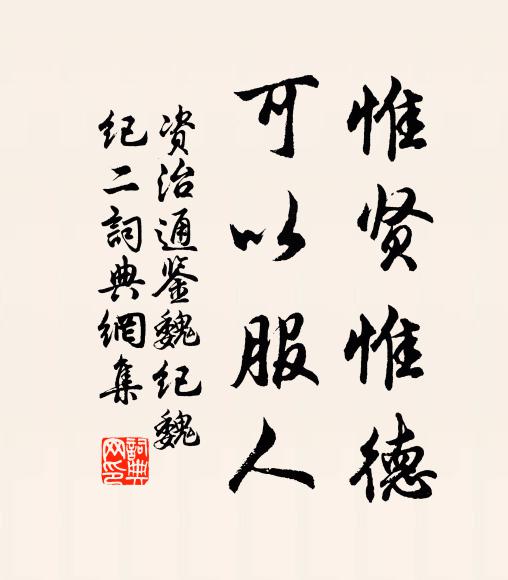 惟贤惟德
可以服人
资治通鉴魏纪魏
纪二詞典網集
詞典
网印